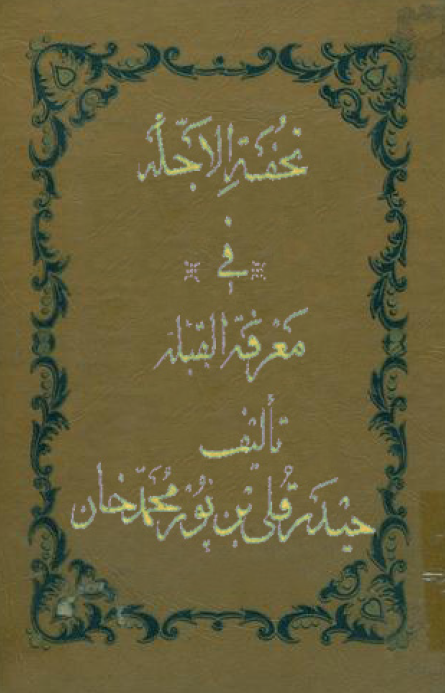 تحفة الاجلّه
في
معرفة القبله
تأليف
حيدر قلى بن نور محمّد خان